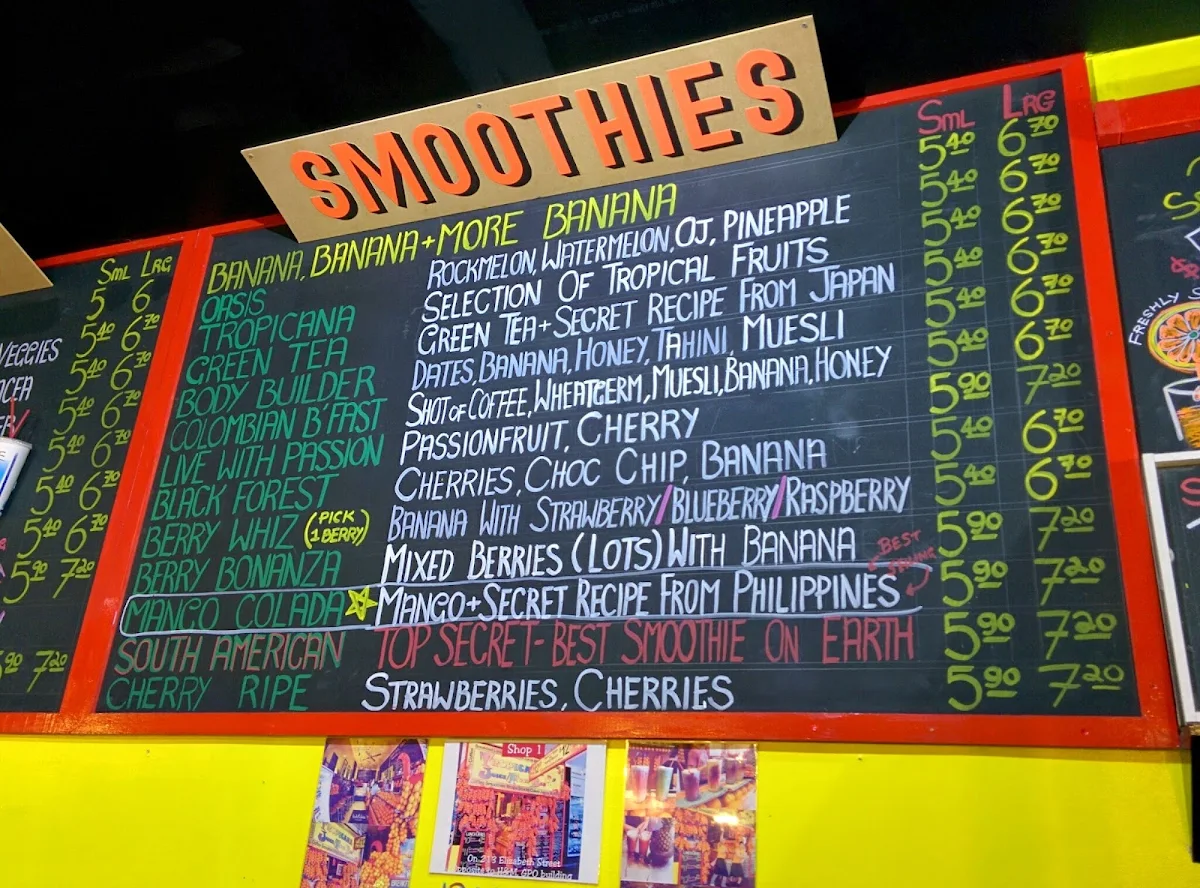 SMOOTHIES
SML LRG
BANANA, BANANA + MORE BANANA 5 40 6 70
OASIS ROCKMELON, WATERMELON, OJ, PINEAPPLE 5 40 6 70
TROPICANA SELECTION OF TROPICAL FRUITS 5 40 6 70
GREEN TEA GREEN TEA + SECRET RECIPE FROM JAPAN 5 40 6 70
BODY BUILDER DATES, BANANA, HONEY, TAHINI, MUESLI 5 40 6 70
COLOMBIAN B'FAST SHOT OF COFFEE, WHEATGERM, MUESLI, BANANA, HONEY 5 40 6 70
LIVE WITH PASSION PASSIONFRUIT, CHERRY 5 90 7 20
BLACK FOREST CHERRIES, CHOC CHIP, BANANA 5 40 6 70
BERRY WHIZ (PICK 1 BERRY) BANANA WITH STRAWBERRY/BLUEBERRY/RASPBERRY 5 40 6 70
BERRY BONANZA MIXED BERRIES (LOTS) WITH BANANA 5 90 7 20
BEST
MANGO COLADA MANGO + SECRET RECIPE FROM PHILIPPINES 5 90 7 20
SOUTH AMERICAN TOP SECRET - BEST SMOOTHIE ON EARTH 5 90 7 20
CHERRY RIPE STRAWBERRIES, CHERRIES 5 90 7 20
SML LRG
5 6
5 40 6 70
VEGGIES 5 40 6
5 40 6
5 40 6 70
5 40 6 70
5 40 6 70
5 90 7 20
90 7 20
FRESHLY
Shop 1
On 213 Elizabeth Street
opposite to Hobt. GPO building